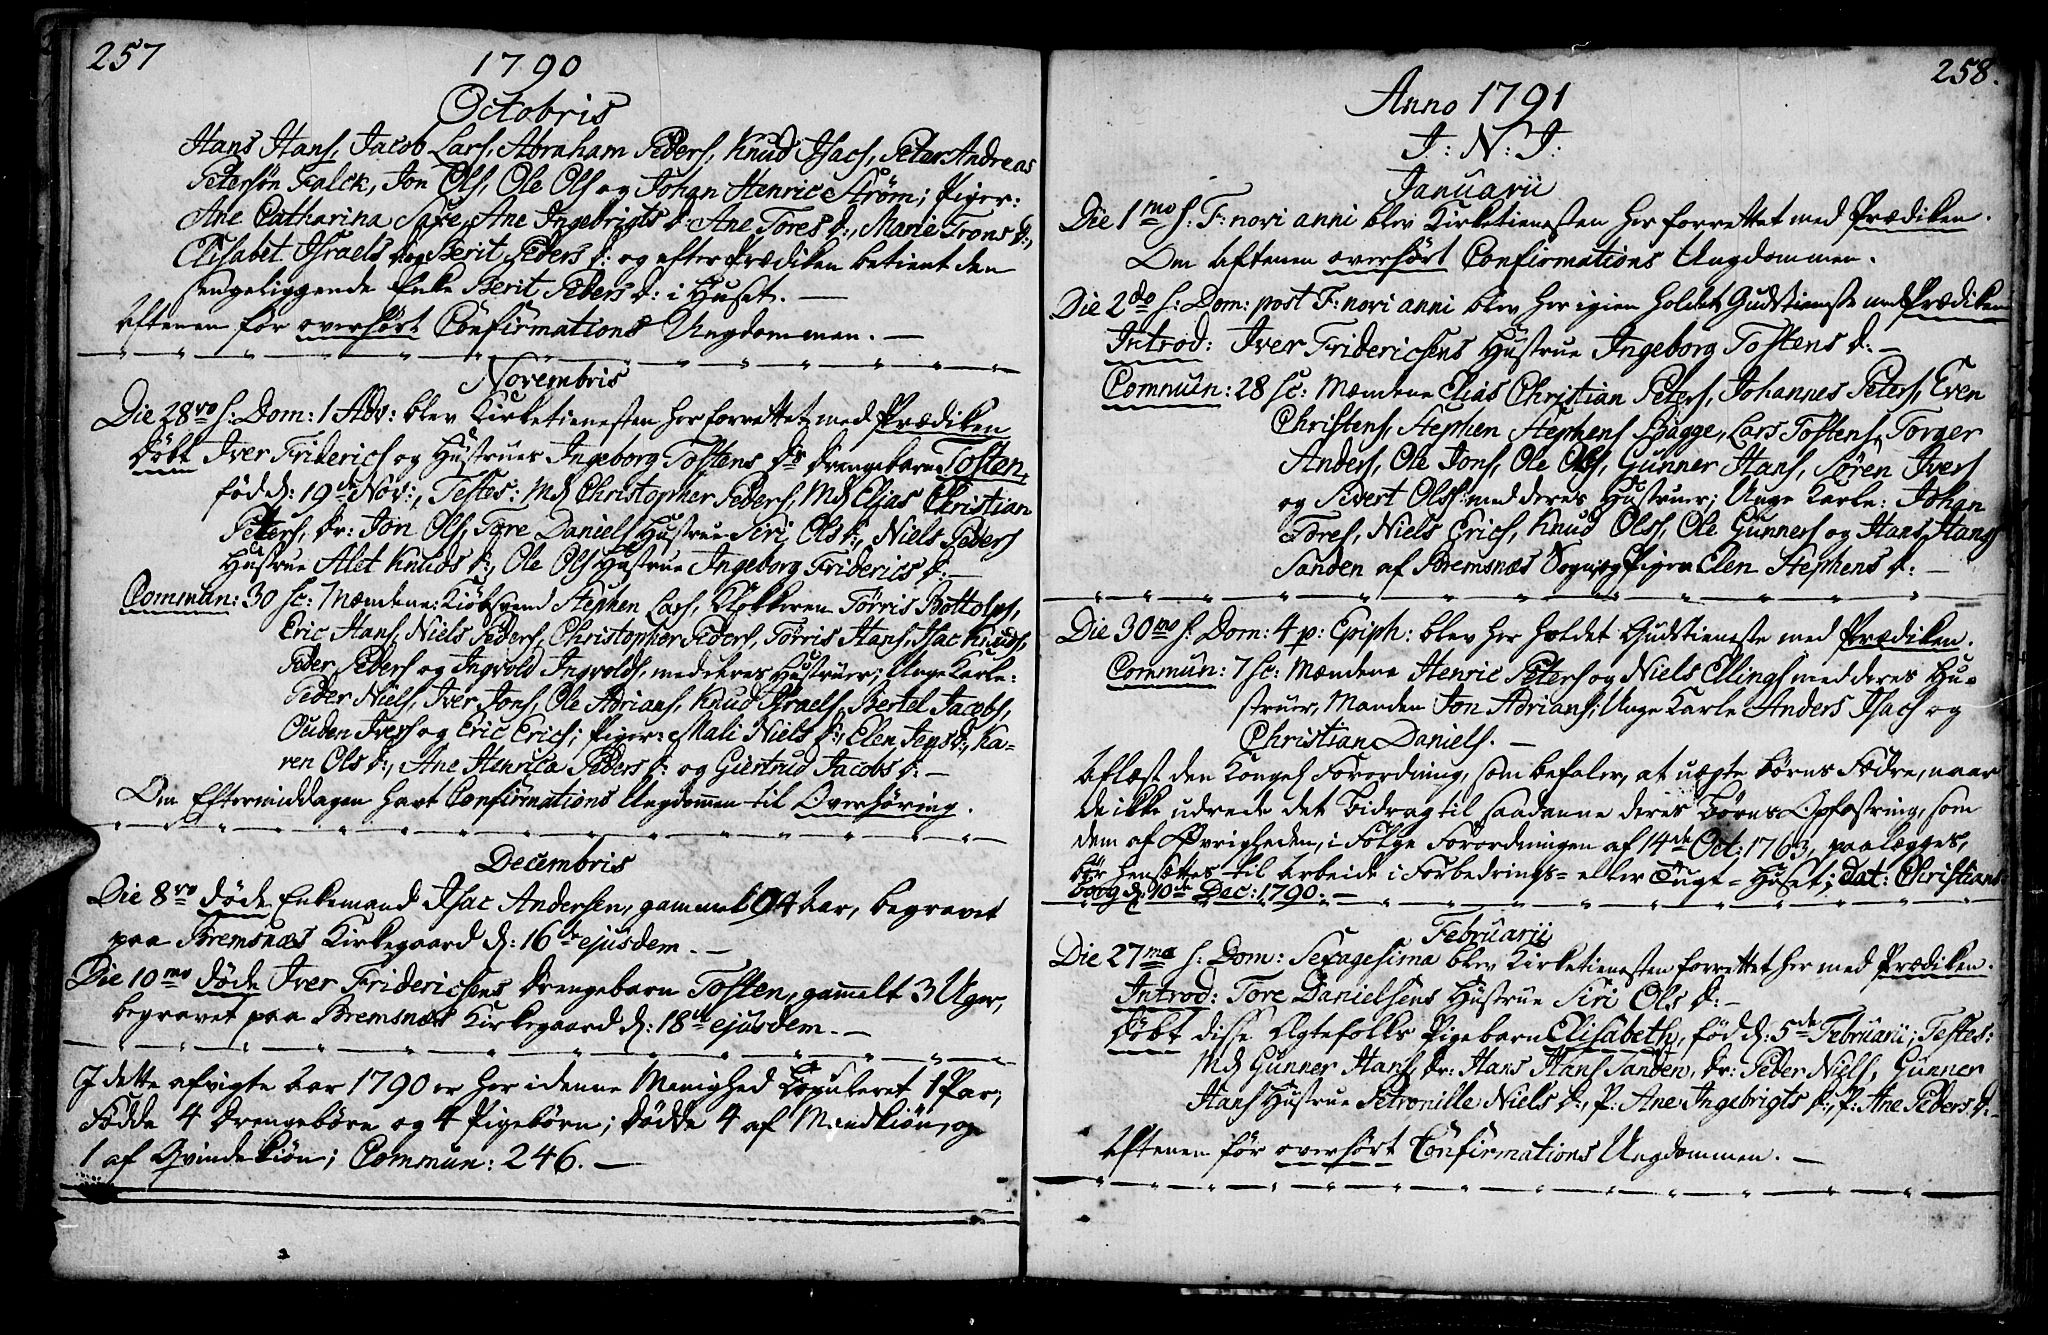 257
1790
Octobris
Hans Hans, Jacob Lars, Abraham Peders, Knud Isacs, Peter Andreas
Petersøn Falck, Jon Ols, Ole Ols og Johan Henric Strøm; Piger:
Ane Catharina Saxe, Ane Ingebrigts d: Ane Tores d:, Marie Trons d:,
Elisabet Israels d: og Berit Peders d: og efter Prædiken betient den
sengeliggende Enke Berit Peders d: i Huset. —
Aftenen før overhørt Confirmations Ungdommen. —
Novembris
Die 28vo s: Dom: 1 Adv: blev Kirketienesten her forrettet med Prædiken
Døbt Iver Friderichs og Hustrues Ingeborg Tostens dr drengebarn Tosten,
fød d: 19de Nov:, Testes: Md Christopher Peders, Md Elias Christian
Peters, dr: Jon Ols, Tore Daniels Hustrue Siri Ols d:, Niels Peders
Hustrue Alet Knuds d:, Ole Ols Hustrue Ingeborg Friderics d: —
Commun: 30 sc: Mændene: Kiøbsvend Stephen Lars, Klokkeren Tørris Bottolvs,
Eric Hans, Niels Peders, Christopher Peders, Tørris Hans, Isac Knuds,
Peder Peders og Ingvold Ingvolds, med deres Hustruer; Unge Karle:
Peder Niels, Iver Jons, Ole Adrians, Knud Israels, Bertel Jacobs,
Ouden Ivers og Eric Erics; Piger: Mali Niels d:, Elen Jens d:, Ka-
ren Ols d:, Ane Henrica Peders d: og Giertrud Jacobs d: —
Om Eftermiddagen havt Confirmations Ungdommen til Overhøring.
Decembris
Die 8vo døde Enkemand Isac Andersen, gammel 94 Aar, begravet
paa Bremsnæs Kirkegaard d: 16de ejusdem. —
Die 10mo døde Iver Friderichsens drengebarn Tosten, gammelt 3 Uger,
begravet paa Bremsnæs Kirkegaard d: 18de ejusdem. —
I dette afvigte Aar 1790 er her i denne Menighed Copuleret 1 Par;
Fødde 4 drengebørn og 4 Pigebørn; dødde 4 af Mandkiøn, og
1 af Qvindekiøn; Commun: 246. —
258.
Anno 1791
J: N: J:
Januarii
Die 1mo s: F: novi anni blev Kirketienesten her forrettet med Prædiken.
Om Aftenen overhørt Confirmations Ungdommen.
Die 2do s: Dom: post F: novi anni blev her igien holdet Gudstieneste med Prædiken
Introd: Iver Friderichsens Hustrue Ingeborg Tostens d: —
Commun: 28 sc: Mændene Elias Christian Peters, Johannes Peters, Even
Christens, Stephen Stephens Bagge, Lars Tostens, Torger
Anders, Ole Jons, Ole Ols, Gunner Hans, Søren Ivers
og Sivert Ols med deres Hustruer; Unge Karle: Johan
Tores, Niels Erics, Knud Ols, Ole Gunners og Hans Hans
Sanden af Bremsnæs Sogn, og Pigen Elen Stephens d: —
Die 30mo s: Dom: 4 p: Epiph: blev her holdet Gudstieneste med Prædiken.
Commun: 7 sc: Mændene Henric Peters og Niels Ellings med deres Hu-
struer, Manden Jon Adrians; Unge Karle Anders Isacs og
Christian Daniels. —
Aflæst den Kongel Forordning, som befaler, at uægte børns Fædre, naar
de ikke udrede det Bidrag til saadanne deres Børns Opfostring, som
dem af Øvrigheden, i Følge Forordningen af 14de Oct: 1763, paalægges,
bør hensættes til Arbeide i Forbedrings- eller Tugt-Huset; dat: Christians-
borg d: 10de Dec: 1790: —
Februarii
Die 27ma s: Dom: Sexagesima blev Kirketienesten forrettet her med Prædiken.
Introd: Tore Danielsens Hustrue Siri Ols d: —
Døbt disse Ægtefolks Pigebarn Elisabeth, fød d: 5de Februarii; Testes:
Md Gunner Hans, dr: Hans Hans Sanden, dr: Peder Niels, Gunner
Hans Hustrue Petronille Niels d:, P: Ane Ingebrigts d:, P: Ane Peders d: —
Aftenen før overhørt Confirmations Ungdommen. —